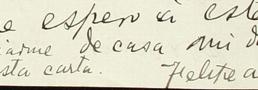 e espero á este
iarme de casa mi d
sta carta. Felipe a